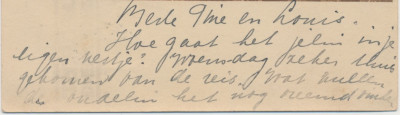 Beste Tine en Louis.
Hoe gaat het jelui in je
eigen nestje? Woensdag zeker thuis
gekomen van de reis. Wat zullen
de oudelui het nog vreemd